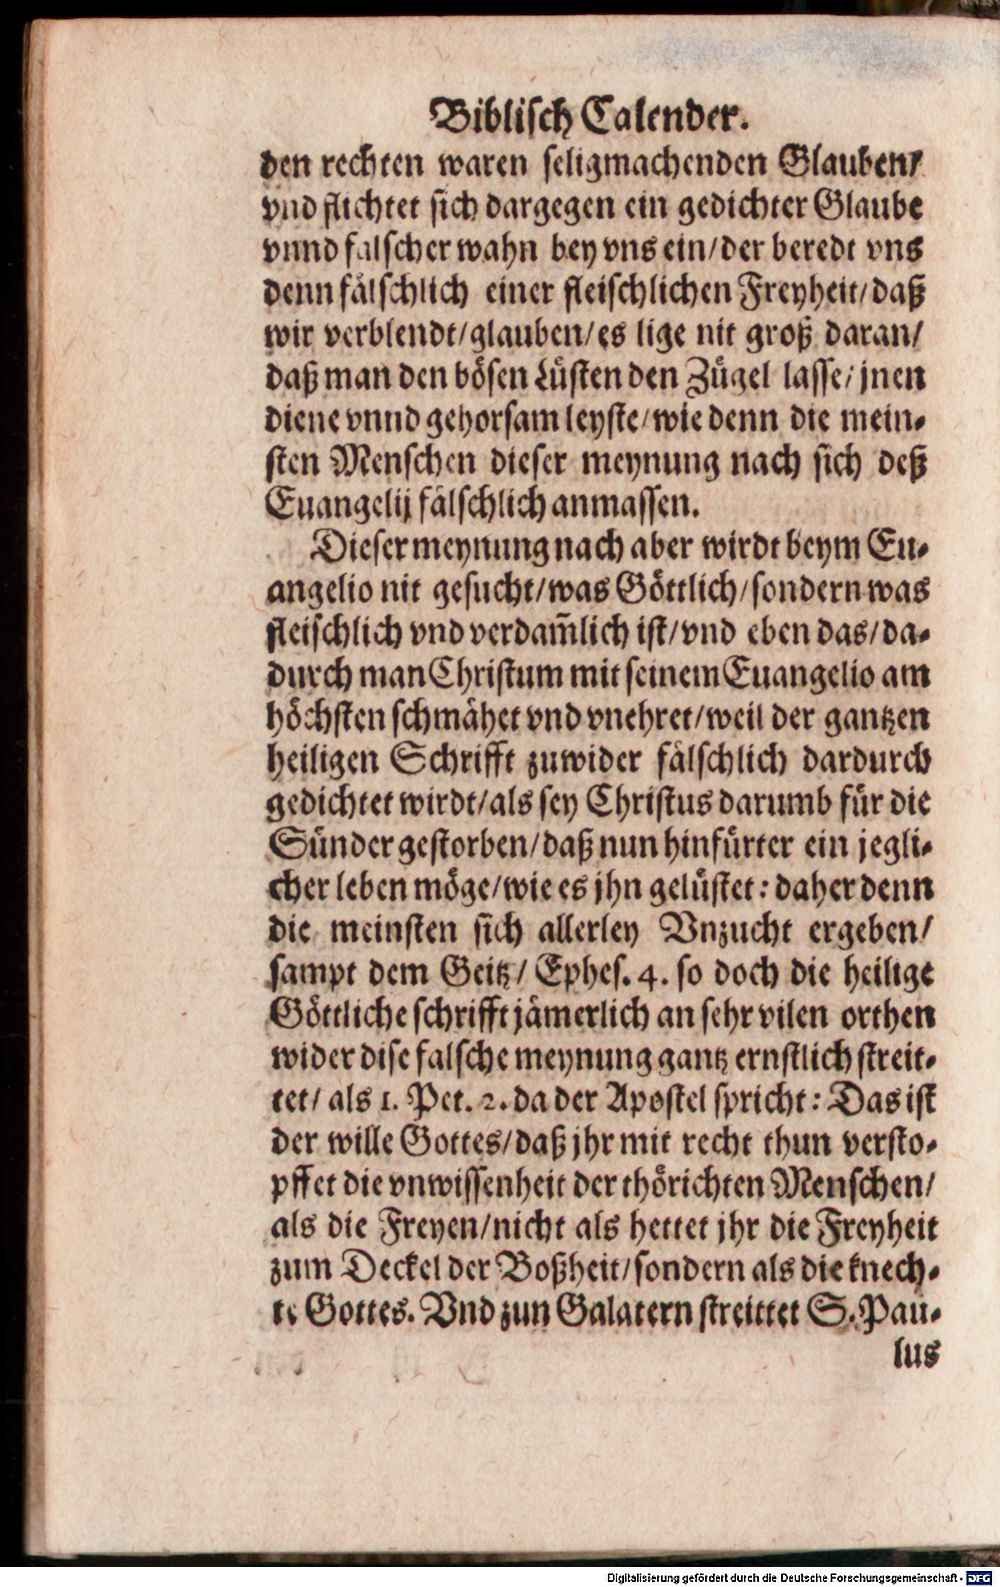 Biblisch Calender.
den rechten waren seligmachenden Glauben/
vnd flichtet sich dargegen ein gedichter Glaube
vnnd falscher wahn bey vns ein/der beredt vns
denn fälschlich einer fleischlichen Freyheit/daß
wir verblendt/glauben/es lige nit groß daran/
daß man den bösen Lüsten den Zügel lasse/jnen
diene vnnd gehorsam leyste/wie denn die mein-
sten Menschen dieser meynung nach sich deß
Euangelij fälschlich anmassen.
Dieser meynung nach aber wirdt beym Eu-
angelio nit gesucht/was Göttlich/sondern was
fleischlich vnd verdam̃lich ist/vnd eben das/da-
durch man Christum mit seinem Euangelio am
höchsten schmähet vnd vnehret/weil der gantzen
heiligen Schrifft zuwider fälschlich dardurch
gedichtet wirdt/als sey Christus darumb für die
Sünder gestorben/daß nun hinfürter ein jegli-
cher leben möge/wie es jhn gelüstet: daher denn
die meinsten sich allerley Vnzucht ergeben/
sampt dem Geitz/ Ephes. 4. so doch die heilige
Göttliche schrifft jämerlich an sehr vilen orthen
wider dise falsche meynung gantz ernstlich streit-
tet/ als 1. Pet. 2. da der Apostel spricht: Das ist
der wille Gottes/daß jhr mit recht thun versto-
pffet die vnwissenheit der thörichten Menschen/
als die Freyen/nicht als hettet jhr die Freyheit
zum Deckel der Boßheit/sondern als die knech-
te Gottes. Vnd zun Galatern streittet S. Pau-
lus
Digitalisierung gefördert durch die Deutsche Forschungsgemeinschaft - DFG